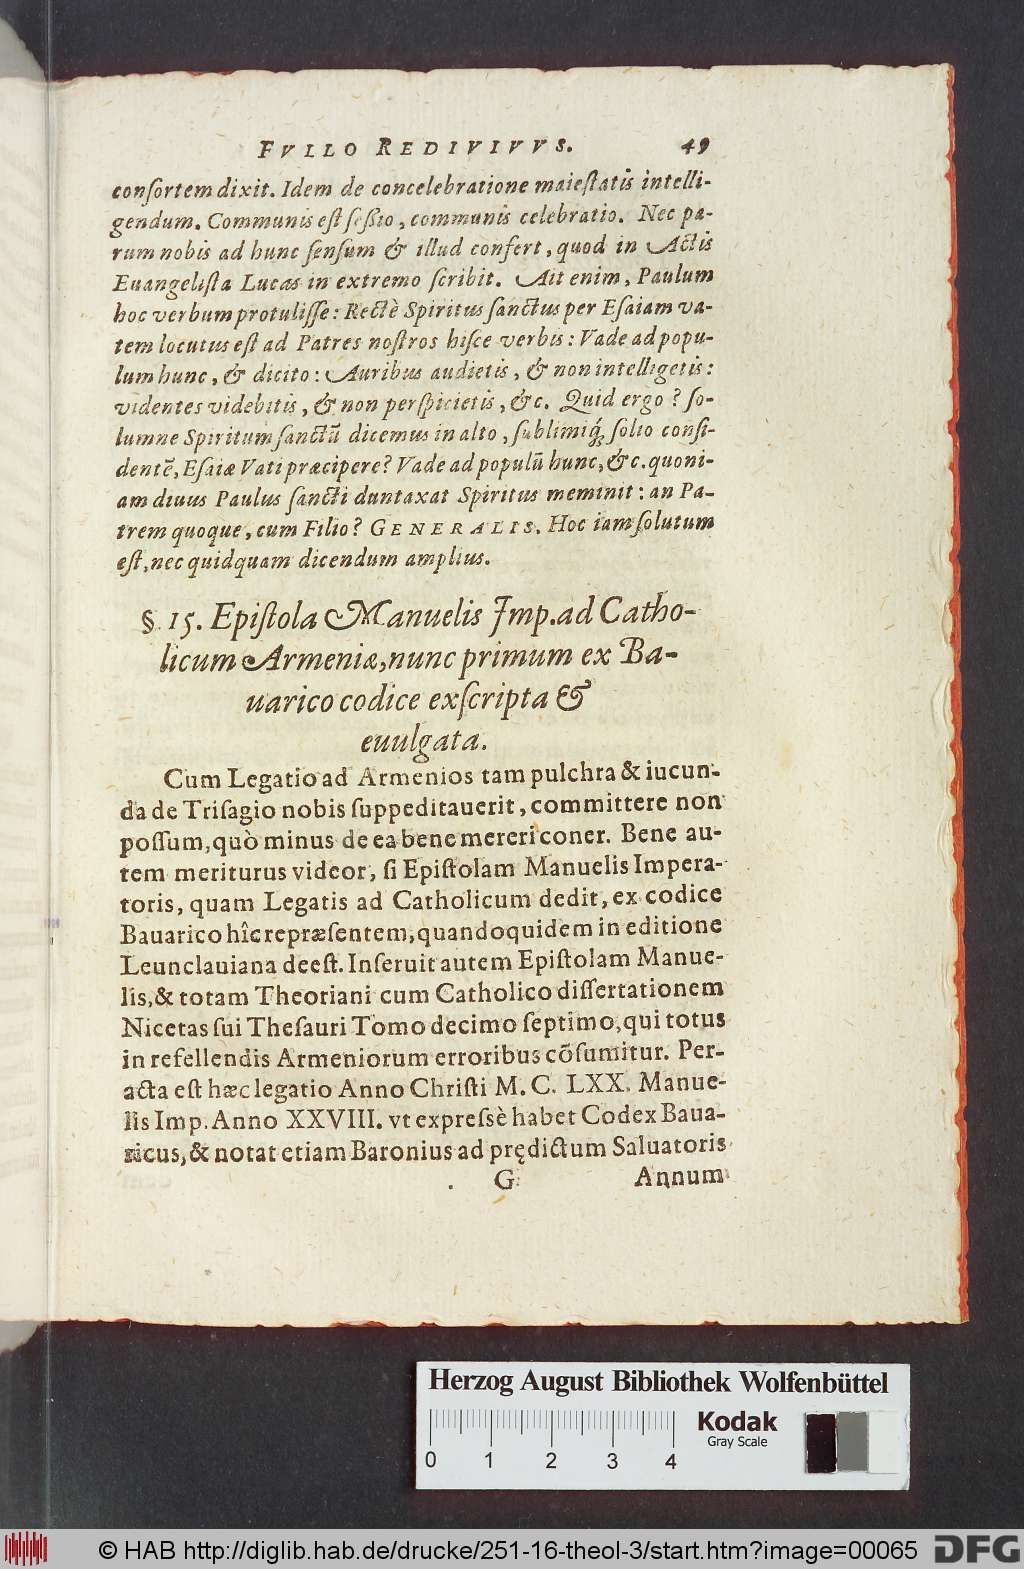 FVLLO REDIVIVVS. 49
conſortem dixit. Idem de concelebratione maieſtatis intelli-
gendum. Communis eſt ſeßio, communis celebratio. Nec pa-
rum nobis ad hunc ſenſum & illud confert, quod in Actis
Euangeliſta Lucas in extremo ſcribit. Ait enim, Paulum
hoc verbum protuliſſe: Rectè Spiritus ſanctus per Eſaiam va-
tem locutus eſt ad Patres noſtros hiſce verbis: Vade ad popu-
lum hunc, & dicito: Auribus audietis, & non intelligetis:
videntes videbitis, & non perſpicietis, &c. Quid ergo? ſo-
lumne Spiritum ſanctū dicemus in alto, ſublimiq́; ſolio conſi-
dentē, Eſaiæ Vati præcipere? Vade ad populū hunc, &c. quoni-
am diuus Paulus ſancti duntaxat Spiritus meminit: an Pa-
trem quoque, cum Filio? GENERALIS. Hoc iam ſolutum
eſt, nec quidquam dicendum amplius.
§. 15. Epiſtola Manuelis Imp. ad Catho-
licum Armeniæ, nunc primum ex Ba-
uarico codice exſcripta &
euulgata.
Cum Legatio ad Armenios tam pulchra & iucun-
da de Triſagio nobis ſuppeditauerit, committere non
poſſum, quò minus de ea bene mereri coner. Bene au-
tem meriturus videor, ſi Epiſtolam Manuelis Impera-
toris, quam Legatis ad Catholicum dedit, ex codice
Bauarico hîc repræſentem, quandoquidem in editione
Leunclauiana deeſt. Inſeruit autem Epiſtolam Manue-
lis, & totam Theoriani cum Catholico diſſertationem
Nicetas ſui Theſauri Tomo decimo ſeptimo, qui totus
in refellendis Armeniorum erroribus cōſumitur. Per-
acta eſt hæc legatio Anno Chriſti M. C. LXX. Manue-
lis Imp. Anno XXVIII. vt expreſsè habet Codex Baua-
ricus, & notat etiam Baronius ad prędictum Saluatoris
G Annum
Herzog August Bibliothek Wolfenbüttel
Kodak
Gray Scale
0 1 2 3 4
© HAB http://diglib.hab.de/drucke/251-16-theol-3/start.htm?image=00065 DFG